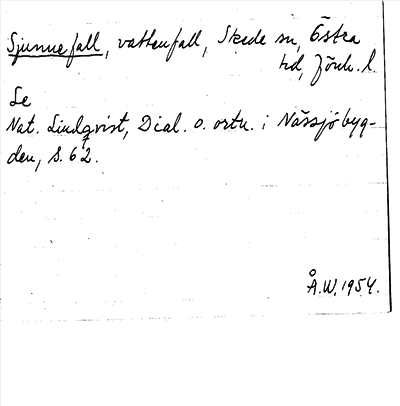 Sjunnefall, vattenfall, Skede sn, Östra
hd, Jönk. l.
Se
Nat. Lindqvist, Dial. o. ortn. i Nässjöbyg-
den, S. 62.
Å.W. 1954.